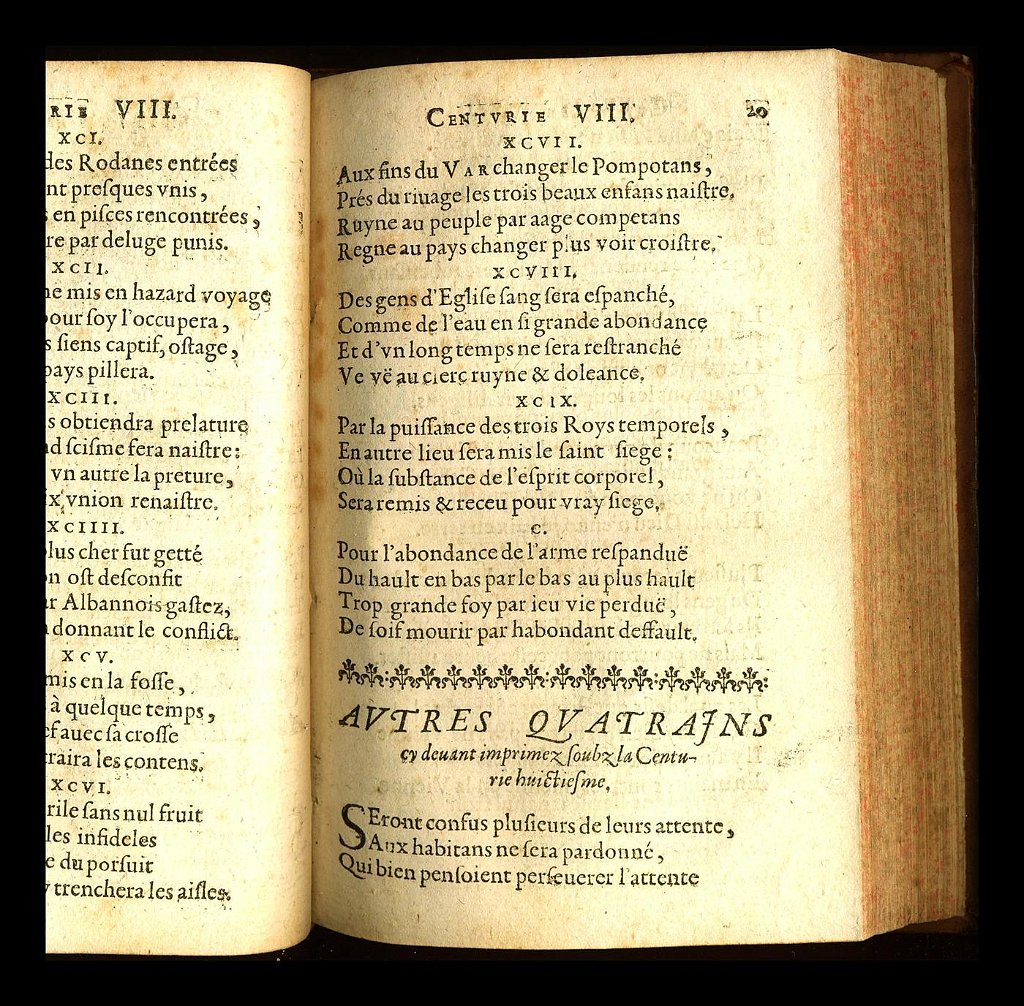 RIE VIII.
XCI.
des Rodanes entrées
nt presques vnis,
s en pisces rencontrées,
re par deluge punis.
XCII.
ne mis en hazard voyage
pour soy l'occupera,
s siens captif, ostage,
pays pillera.
XCIII.
s obtiendra prelature
nd scisme fera naistre:
vn autre la preture,
x vnion renaistre.
XCIIII.
lus cher fut getté
n ost desconfit
r Albannois gastez,
donnant le conflict.
XCV.
mis en la fosse,
à quelque temps,
ef auec sa crosse
traira les contens.
XCVI.
rile sans nul fruit
les infideles
e du porsuit
y trenchera les aisles.
CENTVRIE VIII. 20
XCVII.
Aux fins du VAR changer le Pompotans,
Prés du riuage les trois beaux enfans naistre.
Ruyne au peuple par aage competans
Regne au pays changer plus voir croistre.
XCVIII.
Des gens d'Eglise sang sera espanché,
Comme de l'eau en si grande abondance
Et d'vn long temps ne sera restranché
Ve vë au clerc ruyne & doleance.
XCIX.
Par la puissance des trois Roys temporels,
En autre lieu sera mis le saint siege:
Où la substance de l'esprit corporel,
Sera remis & receu pour vray siege.
C.
Pour l'abondance de l'arme respanduë
Du hault en bas par le bas au plus hault
Trop grande foy par ieu vie perduë,
De soif mourir par habondant deffault.
AVTRES QVATRAINS
cy deuant imprimez soubz la Centu-
rie huictiesme.
SEront confus plusieurs de leurs attente,
Aux habitans ne sera pardonné,
Qui bien pensoient perseuerer l'attente